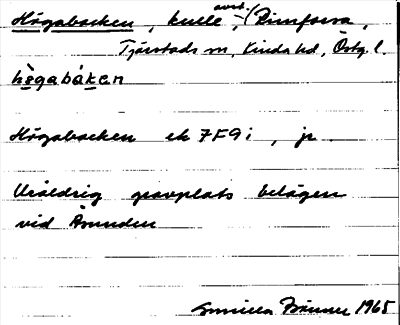 Högabacken, kulle, avst., (Rimforsa,
Tjärstads sn, Kinda hd, Östg. l.
hö̀gabàken
Högabacken ek 7F9i, jr
Uråldrig gravplats belägen
vid Åsunden
Gunilla Brånner 1965